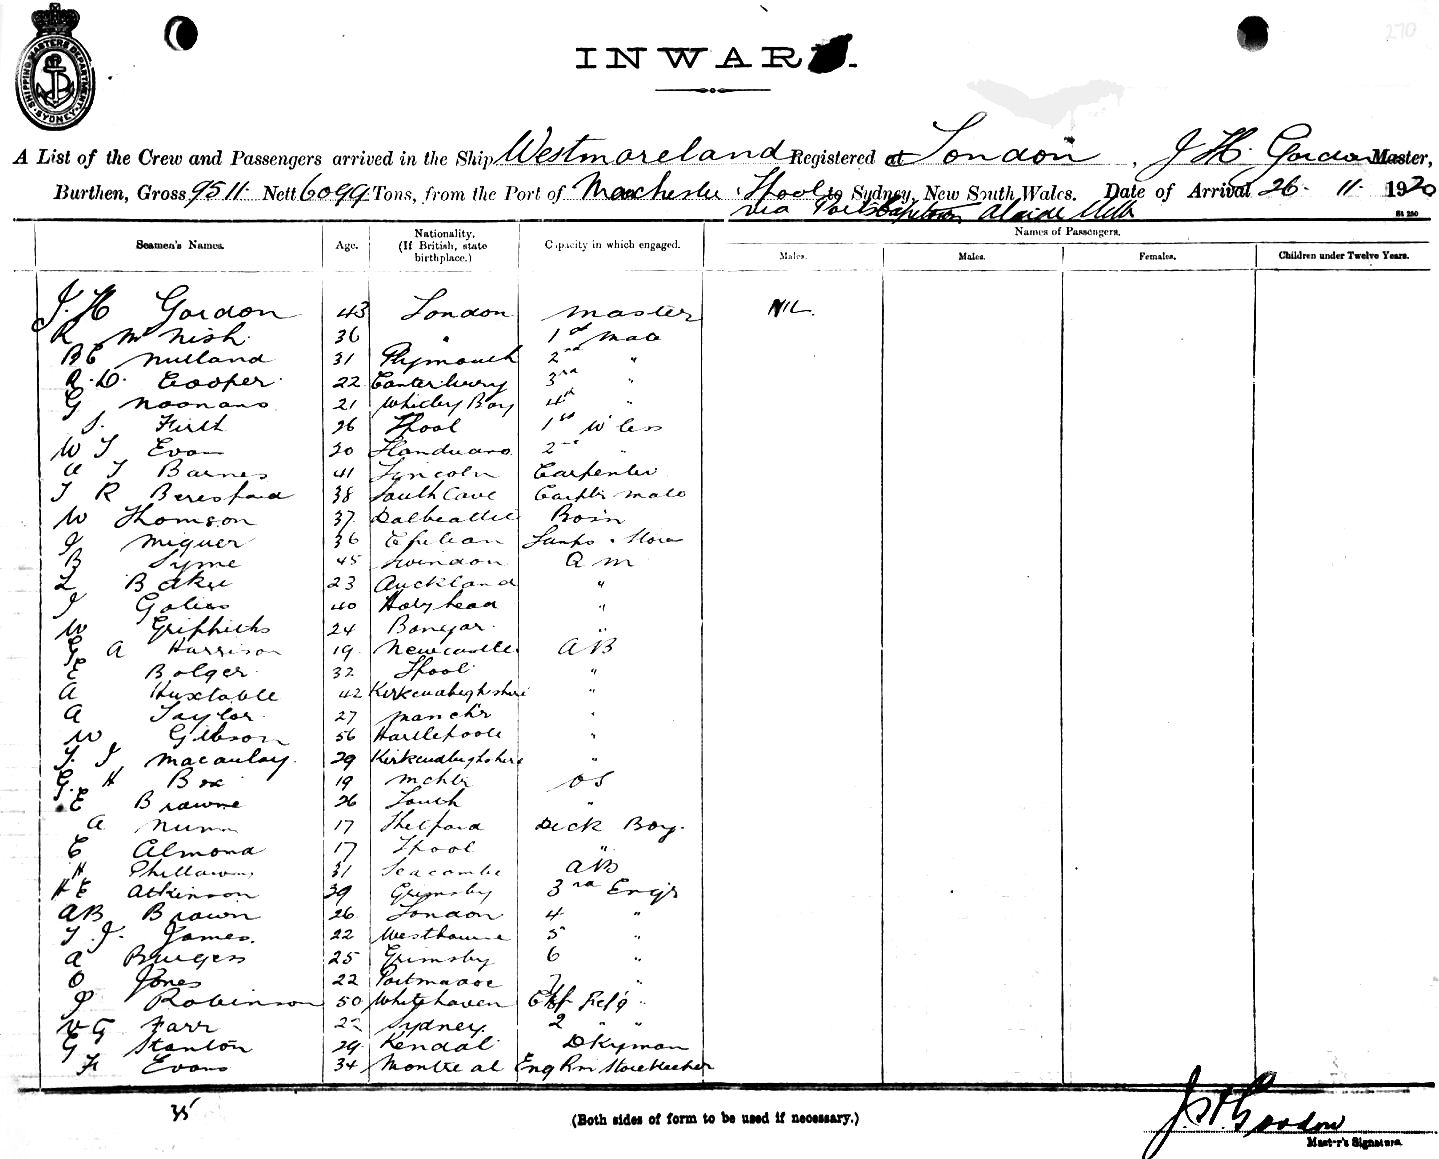 270
SHIPPING MASTERS DEPARTMENT SYDNEY
INWARD.
A List of the Crew and Passengers arrived in the Ship Westmoreland Registered at London, J H. Gordon Master,
Burthen, Gross 9511 Nett 6099 Tons, from the Port of Manchester Lpool to Sydney, New South Wales. Date of Arrival 26. 11. 1920
via Ports Capetown
St 250
Seamen's Names. Age. Nationality. (If British, state birthplace.) Capacity in which engaged. Names of Passengers.
Males. Males. Females. Children under Twelve Years.
J. H Gordon 43 London master NIL.
R McNish 36 " 1st mate
31 Plymouth 2nd "
R. D. Cooper 22 Canterbury 3rd "
G 21 Whitley Bay 4th "
S. Firth 26 Lpool 1st W'less
W T Evans 20 2nd "
A T Barnes 41 Lincoln Carpenter
T R Beresford 38 South Cave mate
W Thomson 37 Dalbeattie Bosn
36 Lamps & Store
B Syme 45 Swindon Q M
L Baker 23 Auckland "
40 Holyhead "
W Griffiths 24 Bangor "
G A Harrison 19 Newcastle AB
E Bolger 32 Lpool "
A Huxtable 42 Kirkcudbrightshire "
A Taylor 27 Manch'r "
W Gibson 56 Hartlepool "
T. J Macaulay 29 Kirkcudbrightshire "
G. H Box 19 Mchtr OS
E Browne 26 Louth "
A Nunn 17 Thetford Deck Boy.
C Almond 17 Lpool "
H 31 Seacombe AB
H E Atkinson 39 Grimsby 3rd Engr
A B Brown 26 London 4 "
T. J. James. 22 Westbourne 5 "
A Burgess 25 Grimsby 6 "
O Jones 22 Portmadoc 7 "
J Robinson 50 Whitehaven Chf Refg "
W G Farr 22 Sydney. 2 " "
G Stanton 29 Kendal Dkyman
F Evans 34 Montreal Eng Rm Storekeeper
35
(Both sides of form to be used if necessary.)
J. H Gordon
Master's Signature.